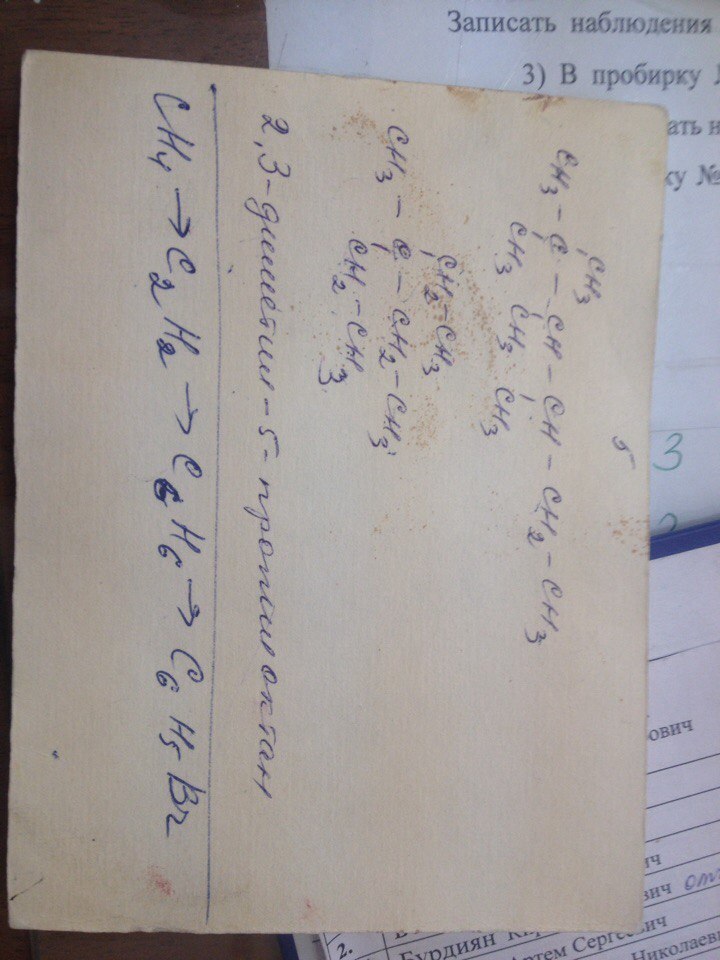 Записать наблюдения
3) В пробирку
ать н
ку №
5
3
CH3
CH3 – C – CH – CH – CH2 – CH3
CH3 CH3 CH3
CH2 – CH3
CH3 – C – CH2 – CH3
CH2 – CH3
2,3-диметил-5-пропилоктан
CH4 → C2H2 → C6H6 → C6H5Br
ович
ич
вич
2.
Бурдиян
ртем Сергеевич
Николаеви